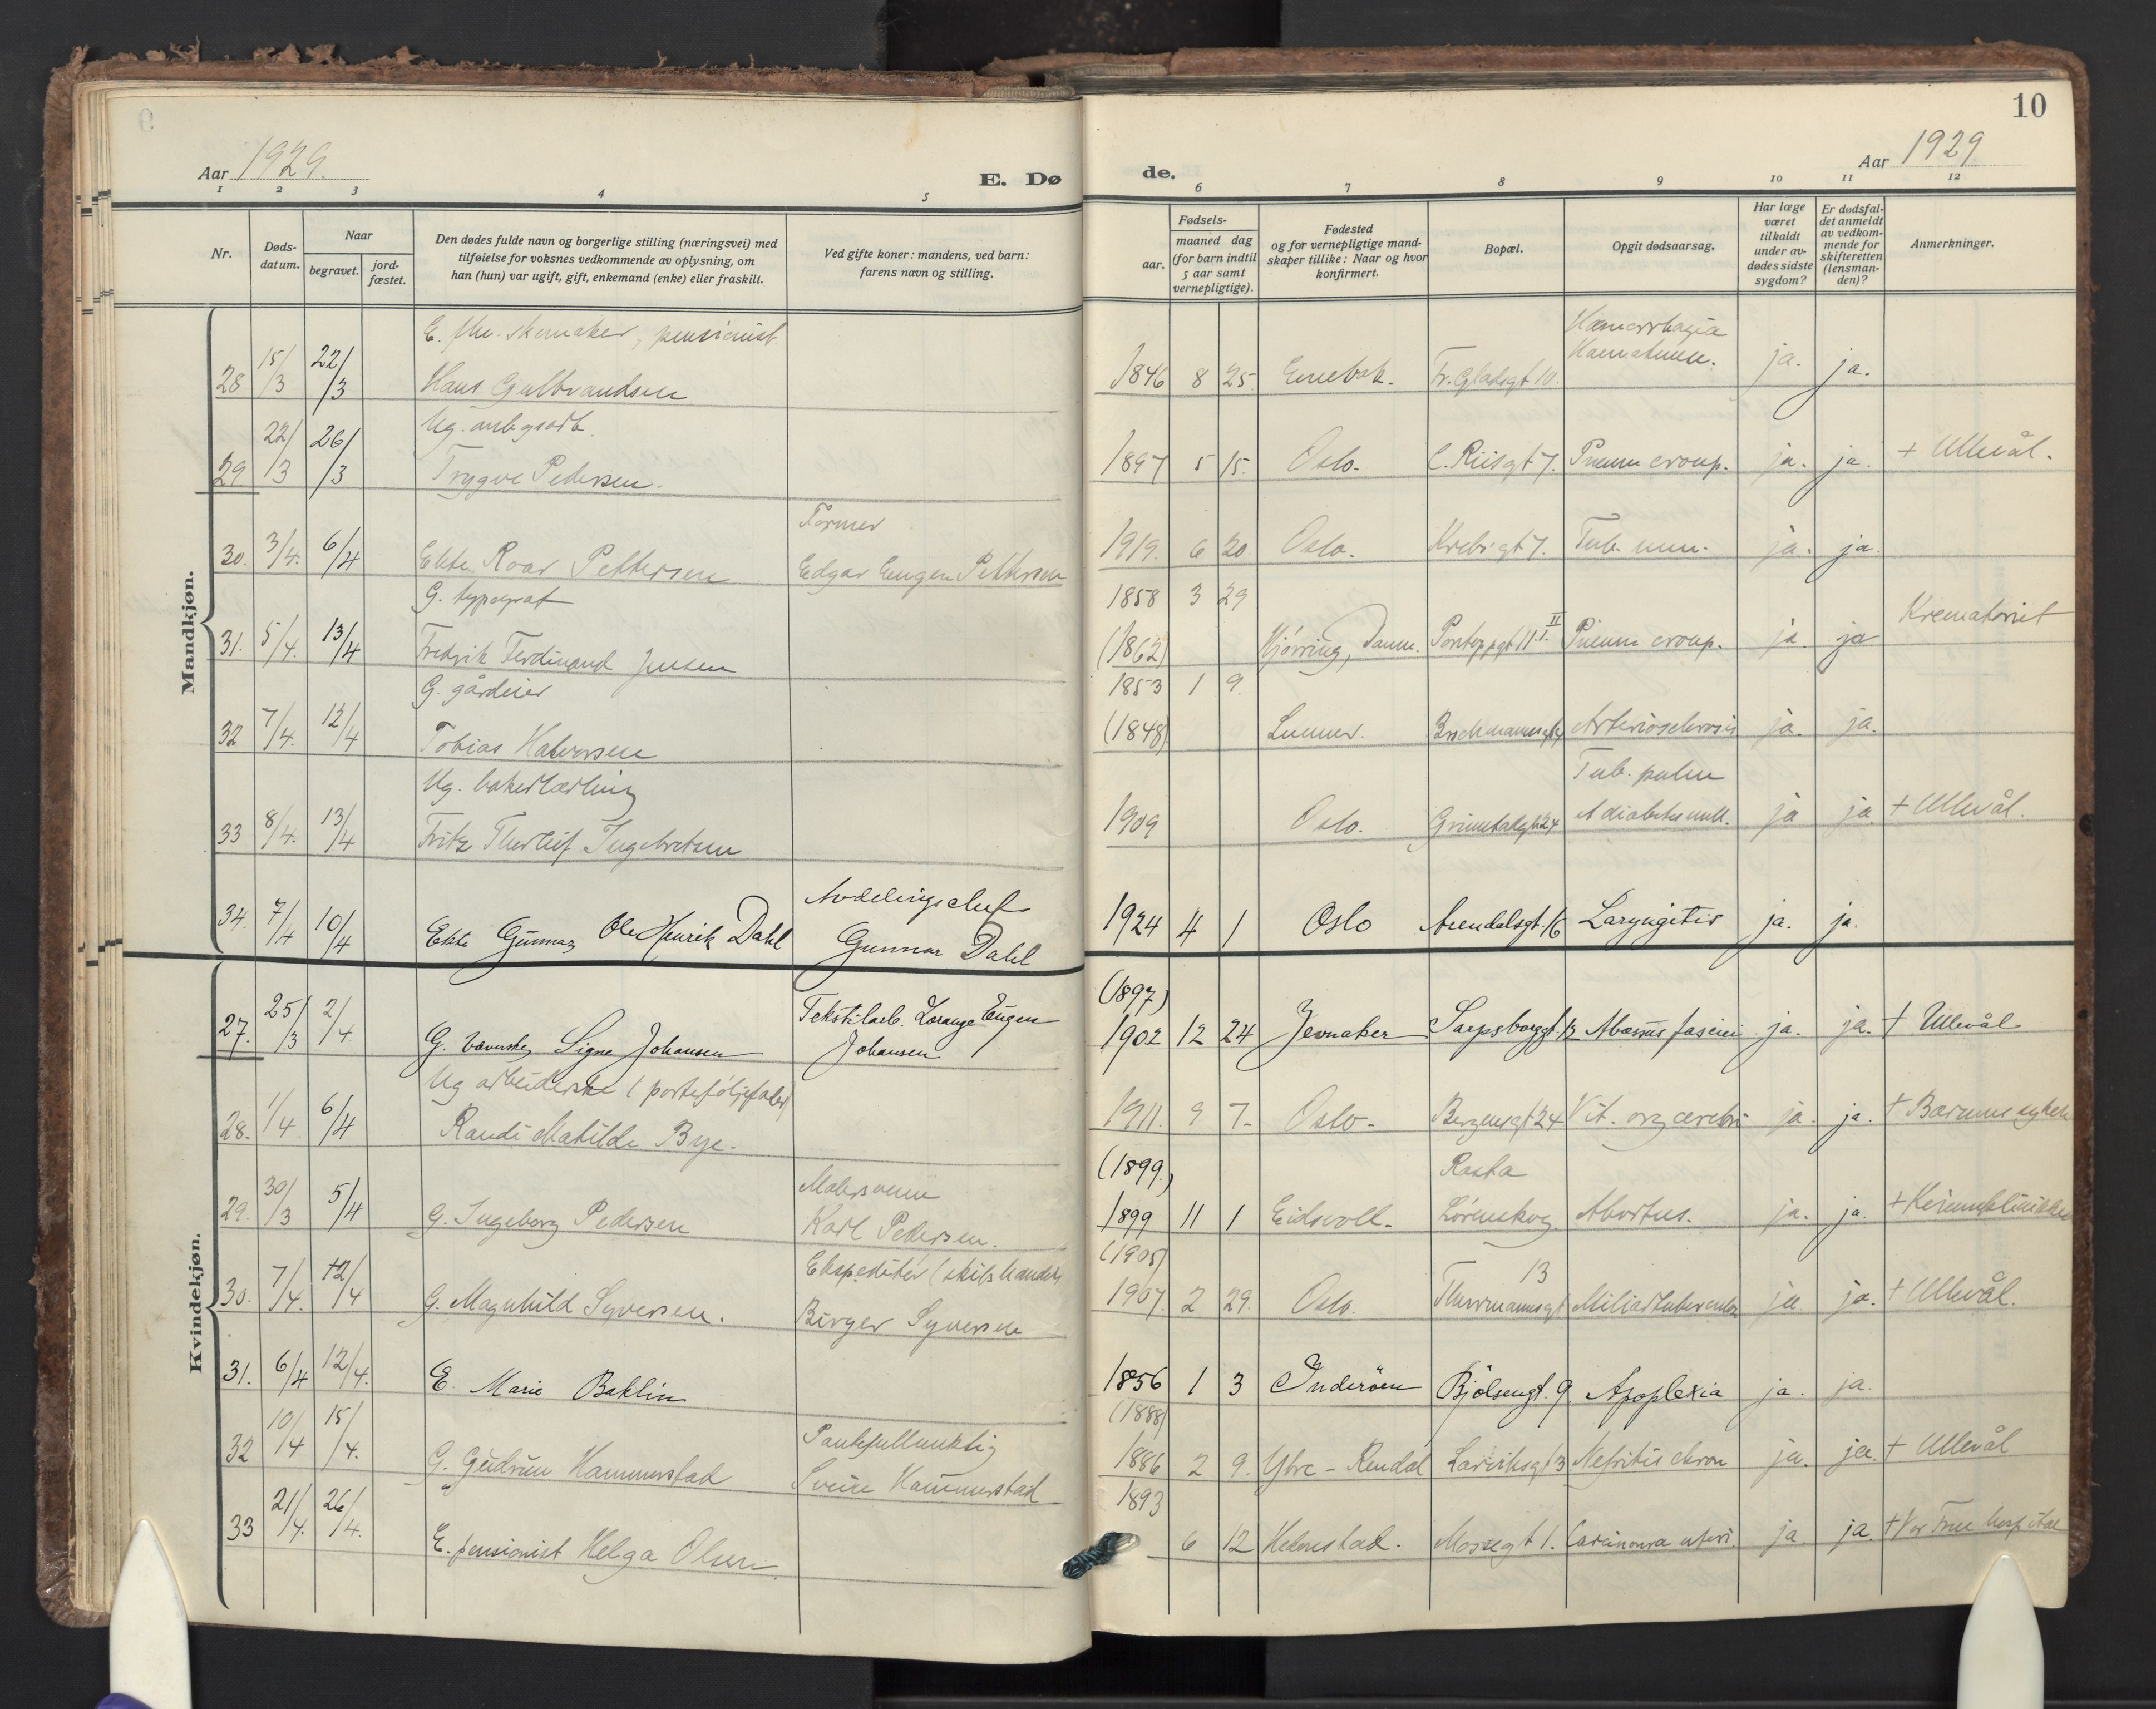 10
Aar 1929.
E. Dø
de.
Aar 1929
1 2 3 4 5
6 7 8 9 10 11 12
Nr.
Døds-
datum.
Naar
begravet.
jord-
fæstet.
Den dødes fulde navn og borgerlige stilling (næringsvei) med
tilføielse for voksnes vedkommende av oplysning, om
han (hun) var ugift, gift, enkemand (enke) eller fraskilt.
Ved gifte koner: mandens, ved barn:
farens navn og stilling.
Fødsels-
aar.
maaned dag
(for barn indtil
5 aar samt
vernepligtige).
Fødested
og for vernepligtige mand-
skaper tillike: Naar og hvor
konfirmert.
Bopæl.
Opgit dødsaarsag.
Har læge
været
tilkaldt
under av-
dødes sidste
sygdom?
Er dødsfal-
det anmeldt
av vedkom-
mende for
skifteretten
(lensman-
den)?
Anmerkninger.
Mandkjøn.
E. fhv. skomaker, pensionist
Hæmorrhagia
28 15/3 22/3 Hans Gulbrandsen 1846 8 25. Enebak. Fr. Gladsgt 10. ja. ja.
Ug. anlegsarb.
29 22/3 26/3 Trygve Petersen. 1897 5 15. Oslo. C. Riisgt 7. Pneum croup. ja. ja. + Ullevål.
Former
30. 3/4. 6/4 Ekte Roar Pettersen Edgar Eugen Pettersen 1919. 6 20 Oslo. Krebsgt 7. Tub. ja. ja.
G. typograf 1858 3 29 Krematoriet
31. 5/4. 13/4 Fredrik Ferdinand Jensen (1862) Hjørring, Danm. 11 II Pneum croup. ja. ja
G. gårdeier 1853 1 9.
32 7/4. 12/4 Tobias Halvorsen (1848) Lunner. Arteriosclerosis ja. ja.
Ug. bakerlærling Tub. pulm
33 8/4. 13/4 Fritz Thorleif Ingebretsen 1909 Oslo. 24 et diabetes mell. ja ja + Ullevål.
Avdelingschef
34. 7/4 10/4 Ekte Gunnar Ole Henrik Dahl Gunnar Dahl 1924 4 1 Oslo Arendalsgt. 16 Laryngitis ja. ja.
Kvindekjøn.
Tekstilarb. Lorang Eugen (1897)
27. 25/3 2/4 G. Signe Johansen Johansen 1902 12 24 Jevnaker Sarpsborggt. 12 Abscessus faciei ja. ja. + Ullevål
Ug arbeiderske (porteføljefabr)
28. 1/4 6/4 Randi Matilde Bye. 1911. 9 7. Oslo. Bergensgt 24 Vit. org cerebri ja. ja. + Bærums sykeh
Malersvenn (1899.) Rasta
29. 30/3 5/4 G. Ingeborg Pedersen Karl Pedersen. 1899 11 1 Eidsvoll. Lørenskog. Abortus. ja. ja. + Kvinneklinikken
Ekspeditør (skibshandel) (1905) 13
30. 7/4. 12/4 G. Magnhild Syversen. Birger Syversen 1907. 2 29. Oslo. Thurmannsgt Miliartuberculos ja ja. + Ullevål.
31. 6/4 12/4. E. Marie Baklin 1856 1 3 Inderöen Bjølsengt. 9 Apoplexia ja. ja.
Pantefullmektig (1888)
32 10/4 15/4. G. Gudrun Hammerstad Sverre Hammerstad 1886 2 9. Ytre-Rendal Larviksgt 3 Nefritis chron ja. ja. + Ullevål
1893
33 21/4. 26/4. E. pensionist Helga Olsen 6 12 Hedenstad. Mossegt 1. Carcinoma uteri. ja ja. + Vor Frue hospital